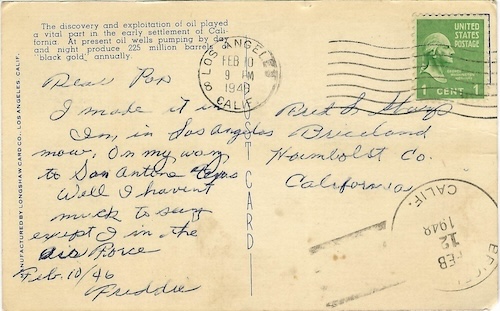 The discovery and exploitation of oil played
a vital part in the early settlement of Cali-
fornia. At present oil wells pumping by day
and night produce 225 million barrels of
"black gold" annually.
Dear Pop
I made it in
I'm, in Los Angeles
now, On my way
to San Antone Texas
Well I havent
much to say
except I in the
Air Force
Feb. 10/46
Freddie
MANUFACTURED BY LONGSHAW CARD CO., LOS ANGELES, CALIF.
POST CARD
LOS ANGELES
FEB 10
9 PM
1948
CALIF.
8
UNITED
STATES
POSTAGE
1 CENT 1
Briceland
Humboldt Co.
California
CALIF.
FEB
12
1948